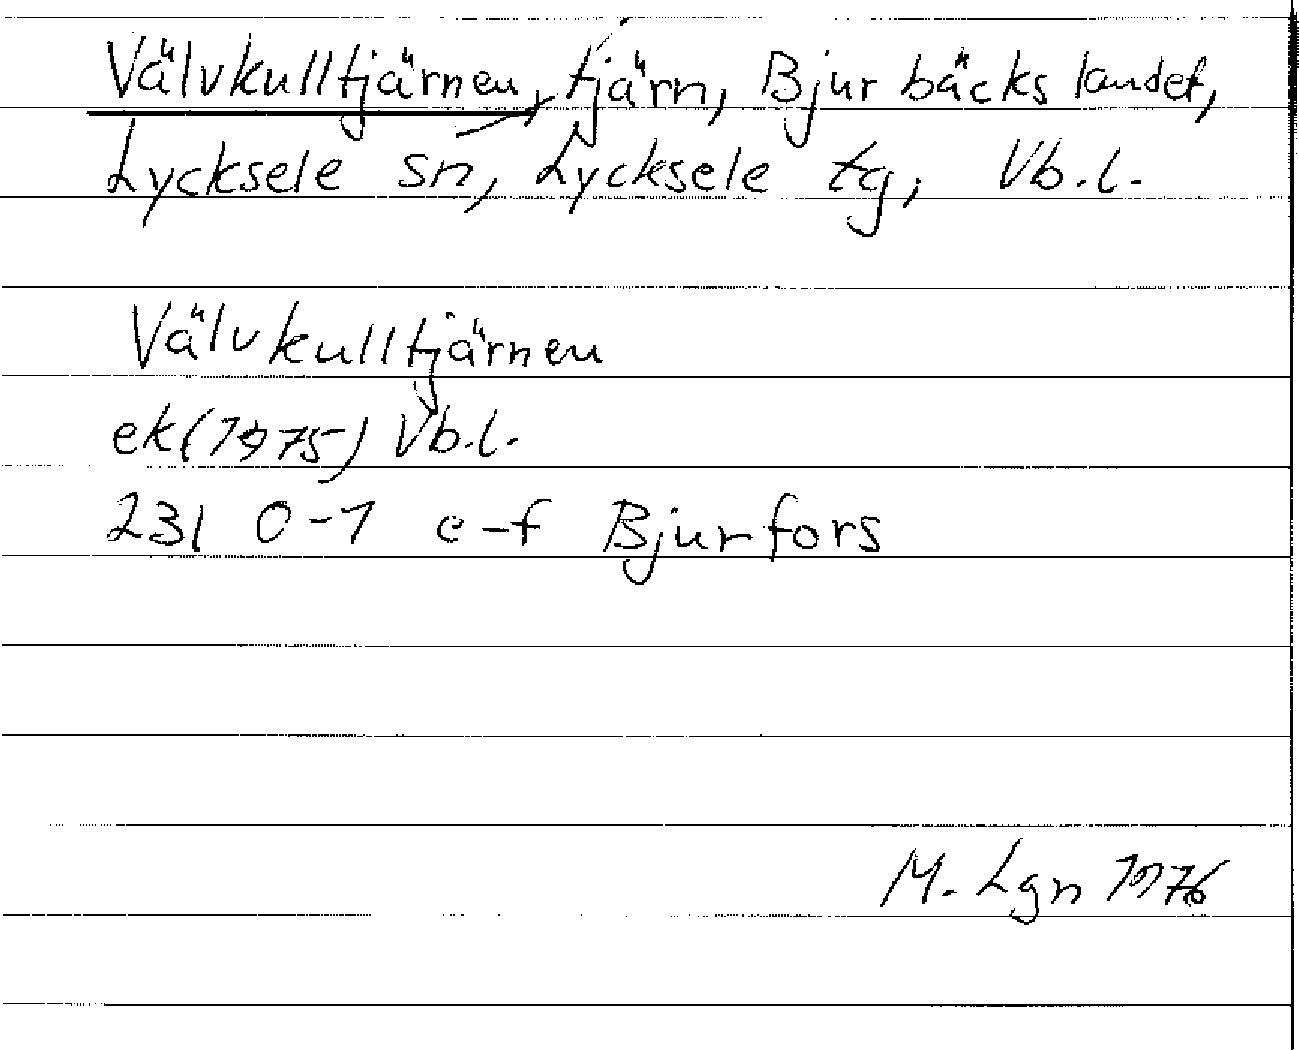 Välvkulltjärnen, tjärn, Bjurbäckslandet,
Lycksele sn, Lycksele tg, Vb.l.
Välvkulltjärnen
ek(1975) Vb.l.
23I 0-1 e-f Bjurfors
M. Lgn 1976